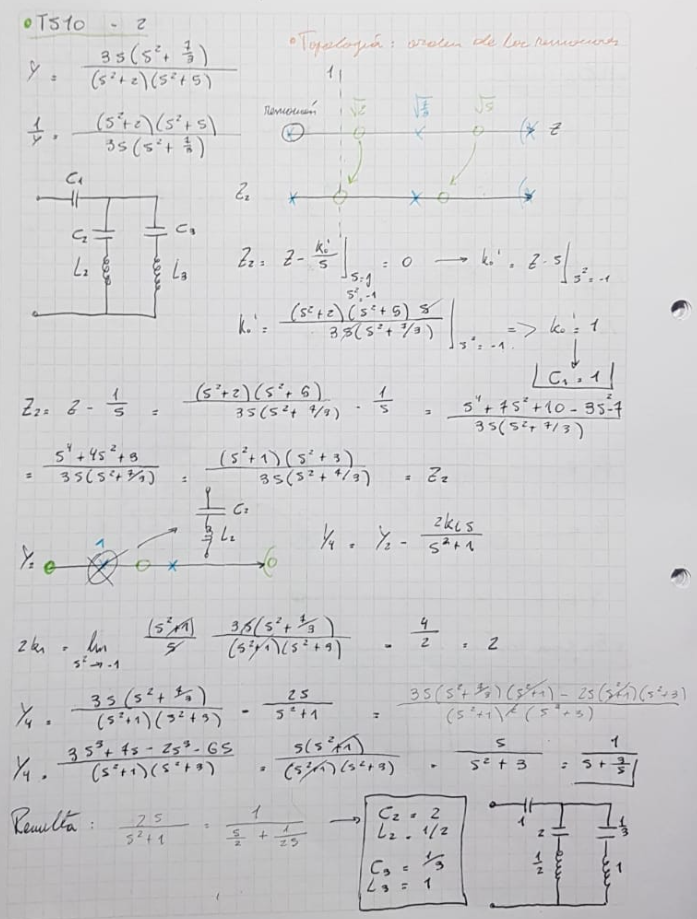 TS10 - 2
Topología: orden de las remociones
Y = 3s(s²+7/3) / (s²+2)(s²+5)
1/Y = (s²+2)(s²+5) / 3s(s²+7/3)
1
remoción √2 √7/3 √5 Z
Z₂
C₁
C₂ C₃
L₂ L₃
Z₂ = Z - k₀'/s |s=j s²=-1 = 0 → k₀' = Z·s |s²=-1
k₀' = (s²+2)(s²+5) s / 3s(s²+7/3) |s²=-1 => k₀' = 1
C₁ = 1
Z₂ = Z - 1/s = (s²+2)(s²+5) / 3s(s²+7/3) - 1/s = s⁴+7s²+10-3s²-7 / 3s(s²+7/3)
= s⁴+4s²+3 / 3s(s²+7/3) = (s²+1)(s²+3) / 3s(s²+7/3) = Z₂
C₂
L₂
Y₂ 1
Y₄ = Y₂ - 2k₁s / s²+1
2k₁ = lim s²→-1 (s²+1)/s 3s(s²+7/3) / (s²+1)(s²+3) = 4/2 = 2
Y₄ = 3s(s²+7/3) / (s²+1)(s²+3) - 2s / s²+1 = 3s(s²+7/3)(s²+1) - 2s(s²+1)(s²+3) / (s²+1)²(s²+3)
Y₄ = 3s³+7s-2s³-6s / (s²+1)(s²+3) = s(s²+1) / (s²+1)(s²+3) = s / s²+3 = 1 / s+3/s
Resulta: 2s / s²+1 = 1 / s/2 + 1/2s →
C₂ = 2
L₂ = 1/2
C₃ = 1/3
L₃ = 1
1
2 1/3
1/2 1